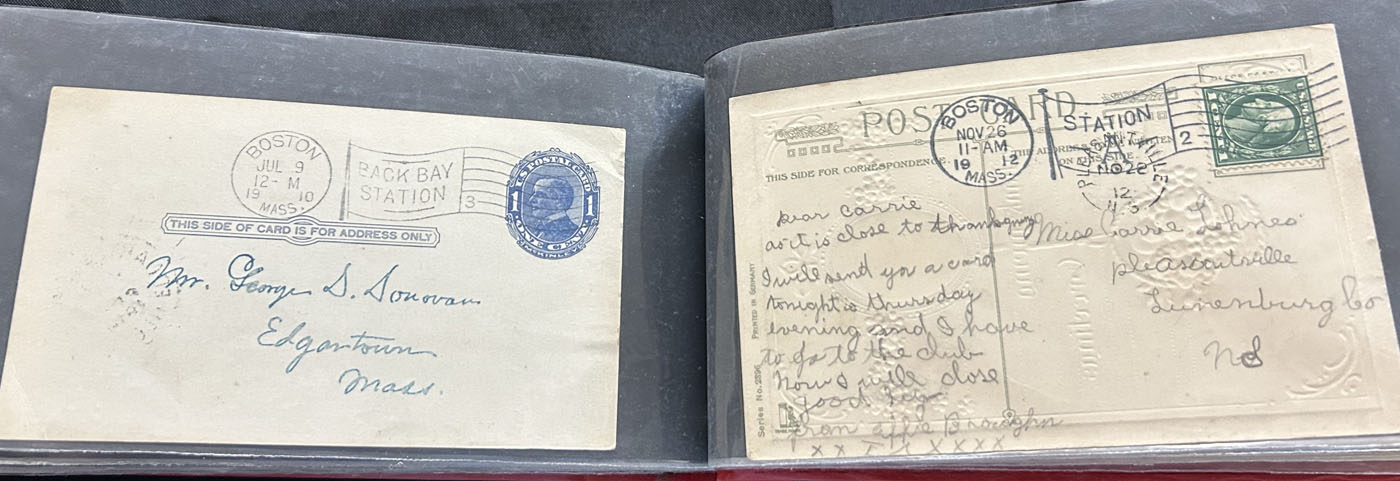 BOSTON
JUL 9
12- M
19 10
MASS.
BACK BAY
STATION
3
U.S. POSTAL CARD
1 1
ONE CENT
McKINLEY
THIS SIDE OF CARD IS FOR ADDRESS ONLY
Mr. George S. Donovan
Edgartown
Mass.
POST CARD
BOSTON
NOV 26
11-AM
19 12
MASS.
STATION
A
2
NO 22
12
THIS SIDE FOR CORRESPONDENCE.
THE ADDRESS
ON THIS SIDE
Dear Carrie
as it is close to thanksgiving
I will send you a card
tonight is thursday
evening and I have
to go to the club
now I will close
good bye
from Effie
x x x x x x x x
Miss Carrie Lohnes
pleasantville
Lunenburg Co
NS
Series No. 2896 PRINTED IN GERMANY